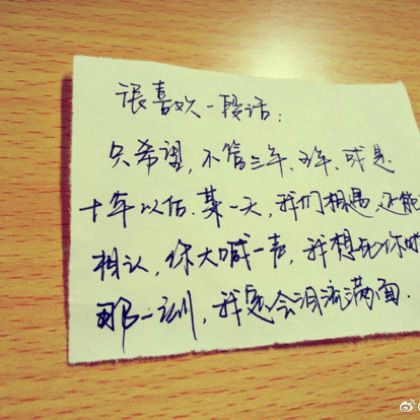 很喜欢一段话：
只希望，不管三年、五年、或是
十年以后，某一天，我们相遇，还能
相认，你大喊一声，我想死你时
那一训，我定会泪流满面.